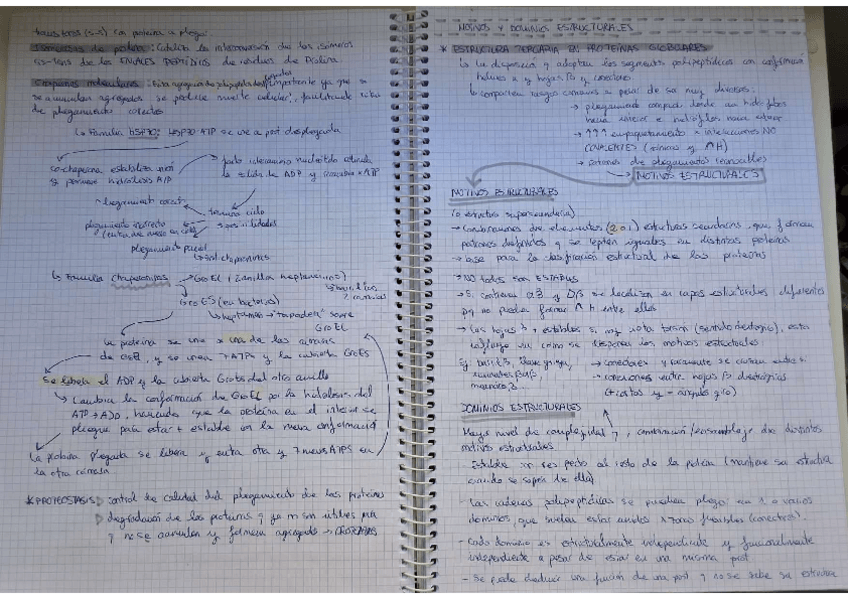 puentes (s-s) con proteína a plegar.
Isomerasas de prolina: Cataliza la interconversión de los isómeros
cis-trans de los ENLACES PEPTÍDICOS de residuos de Prolina
Chaperonas moleculares: Evita agregación de polipéptidos importante ya que si
se acumulan agregados se produce muerte celular, facilitando
de plegamiento correctos
↳ Familia HSP70: HSP70 ATP se une a prot desplegada
co-chaperona estabiliza
y permite hidrólisis ATP
factor intercambio nucleótido estimula
la salida de ADP y ATP
plegamiento correcto
termina ciclo
3 posibilidades
plegamiento incorrecto
(entra de nuevo en ciclo)
plegamiento parcial
↳ chaperoninas
↳ Familia Chaperoninas → GroEL (2 anillos heptaméricos)
GroES (en bacterias)
2 cámaras
↳ heptámero "tapadera" sobre
GroEL
La proteína se une a una de las cámaras
de GroEL, y se unen 7 ATPs y la cubierta GroES
Se libera el ADP y la cubierta GroES del otro anillo
↳ Cambia la conformación de GroEL por la hidrólisis del
ATP → ADP, haciendo que la proteína en el interior se
pliegue para estar + estable en la nueva conformación
La proteína plegada se libera y entra otra y 7 nuevos ATPs en
la otra cámara.
* PROTEOSTASIS: control de calidad del plegamiento de las proteínas
degradación de las proteínas q ya no son útiles para
q no se acumulen y formen agregados →
MOTIVOS Y DOMINIOS ESTRUCTURALES
* ESTRUCTURA TERCIARIA EN PROTEÍNAS GLOBULARES
↳ La disposición q adoptan los segmentos polipeptídicos con conformación
hélices α y hojas β y conectores
↳ comparten rasgos comunes a pesar de ser muy diversas:
→ plegamiento compacto donde aa hidrófobos
hacia interior e hidrófilos hacia exterior
→ ↑↑↑ empaquetamiento e interacciones NO
COVALENTES (iónicas y H)
→ patrones de plegamientos reconocibles
MOTIVOS ESTRUCTURALES
MOTIVOS ESTRUCTURALES
(o estructura supersecundaria)
→ Combinaciones de elementos (2 o +) estructuras secundarias que forman
patrones definidos y se repiten iguales en distintas proteínas
→ base para la clasificación estructural de las proteínas
→ NO todos son ESTABLES
→ Si contienen α y β se localizan en capas estructurales diferentes
pq no pueden formar H entre ellos
→ Las hojas β + estables si hay cierta torsión (sentido dextrógiro), esto
influye en cómo se disponen los motivos estructurales
→ conectores raramente se cruzan entre sí
→ conexiones entre hojas β dextrógiras
(+ cortas y - ángulos giro)
DOMINIOS ESTRUCTURALES
Mayor nivel de complejidad, combinación/ensamblaje de distintos
motivos estructurales
- Estable con respecto al resto de la proteína (mantiene su estructura
cuando se separa de ella)
- Las cadenas polipeptídicas se pueden plegar en 1 o varios
dominios, que suelen estar unidos x zonas flexibles (conectores).
- Cada dominio es estructuralmente independiente y funcionalmente
independiente a pesar de estar en una misma prot.
- Se puede deducir una función de una prot q no se sabe su estructura